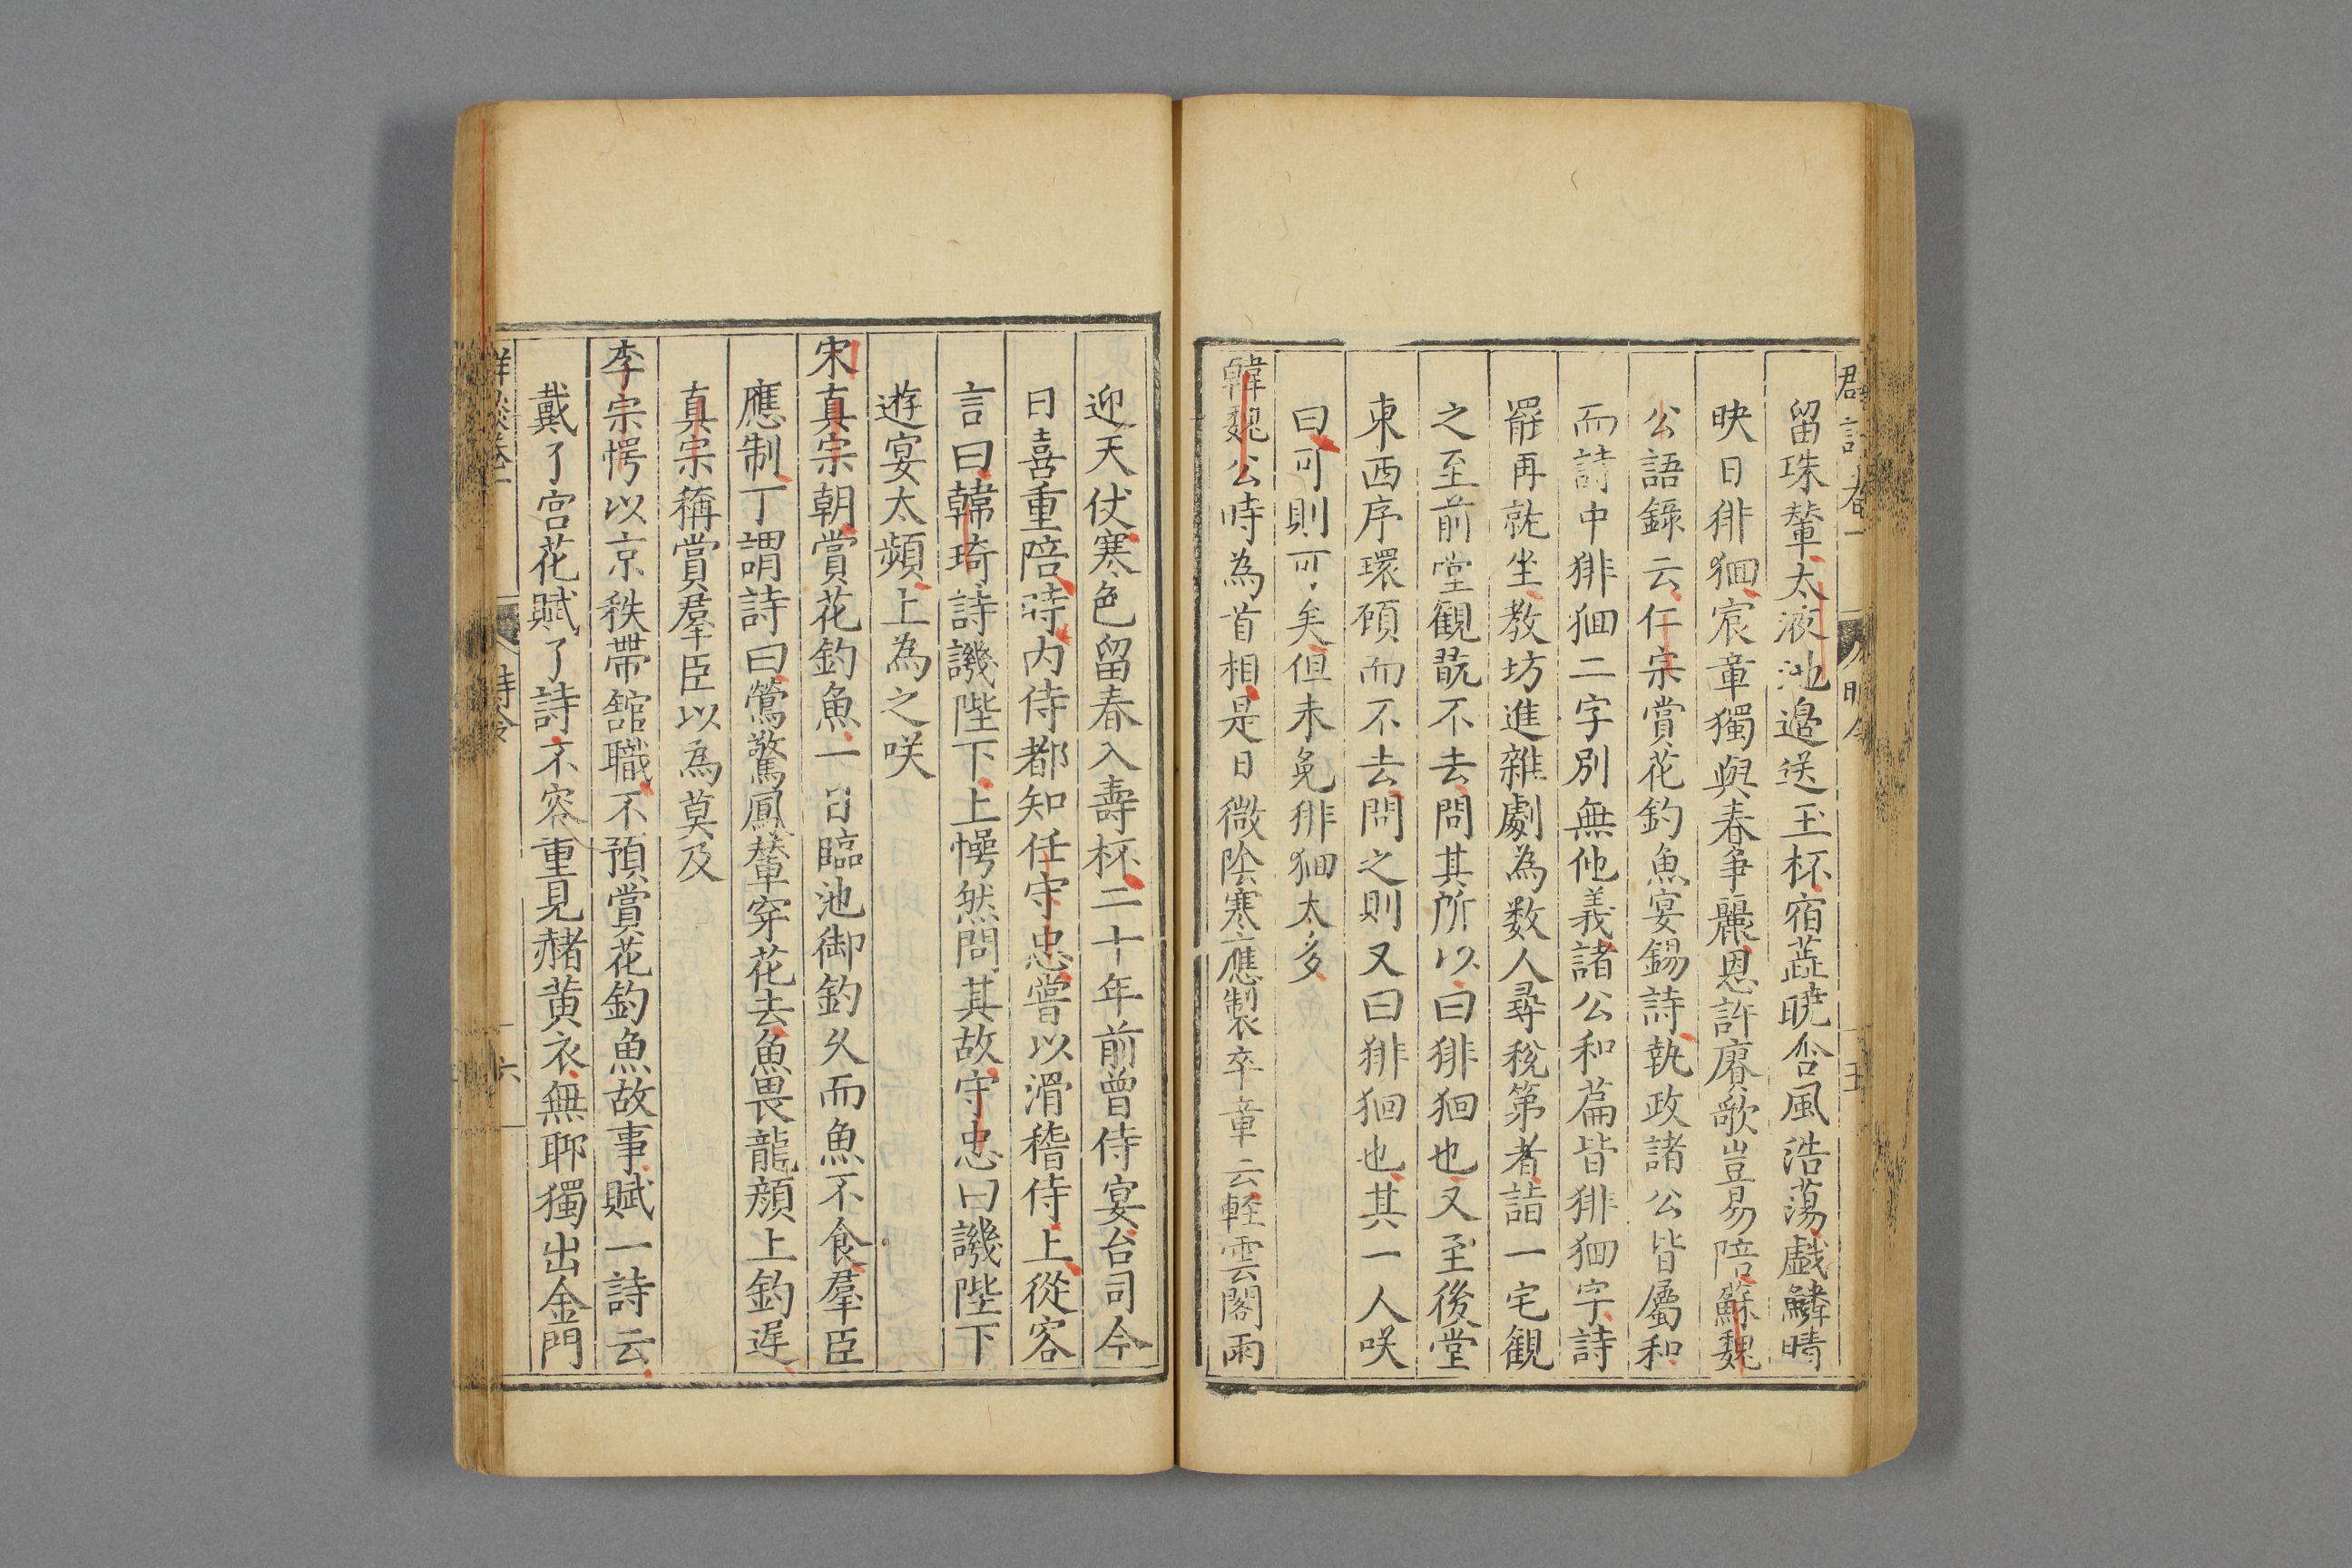 留珠輦太液池邉送玉杯宿蕋曉含風浩蕩戱鱗晴
映日徘徊宸章獨與春爭麗恩許賡歌豈易陪蘇魏
公語錄云仁宗賞花釣魚宴錫詩執政諸公皆屬和
而詩中徘徊二字別無他義諸公和篇皆徘徊字詩
罷再就坐教坊進雜劇為数人尋稅第者詣一宅觀
之至前堂觀翫不去問其所以曰徘徊也又至後堂
東西序環顧而不去問之則又曰徘徊也其一人咲
曰可則可矣但未免徘徊太多
韓魏公時為首相是日微隂寒應製卒章云輕雲閣雨
迎天仗寒色留春入壽杯二十年前曾侍宴台司今
日喜重陪時内侍都知任守忠嘗以滑稽侍上從容
言曰韓琦詩譏陛下上愕然問其故守忠曰譏陛下
遊宴太頻上為之咲
宋真宗朝賞花釣魚一日臨池御釣久而魚不食羣臣
應制丁謂詩曰鶯驚鳳輦穿花去魚畏龍顏上釣遲
真宗稱賞羣臣以為莫及
李宗愕以京秩帶舘職不預賞花釣魚故事賦一詩云
戴了宫花賦了詩不容重見赭黄衣無聊獨出金門
六